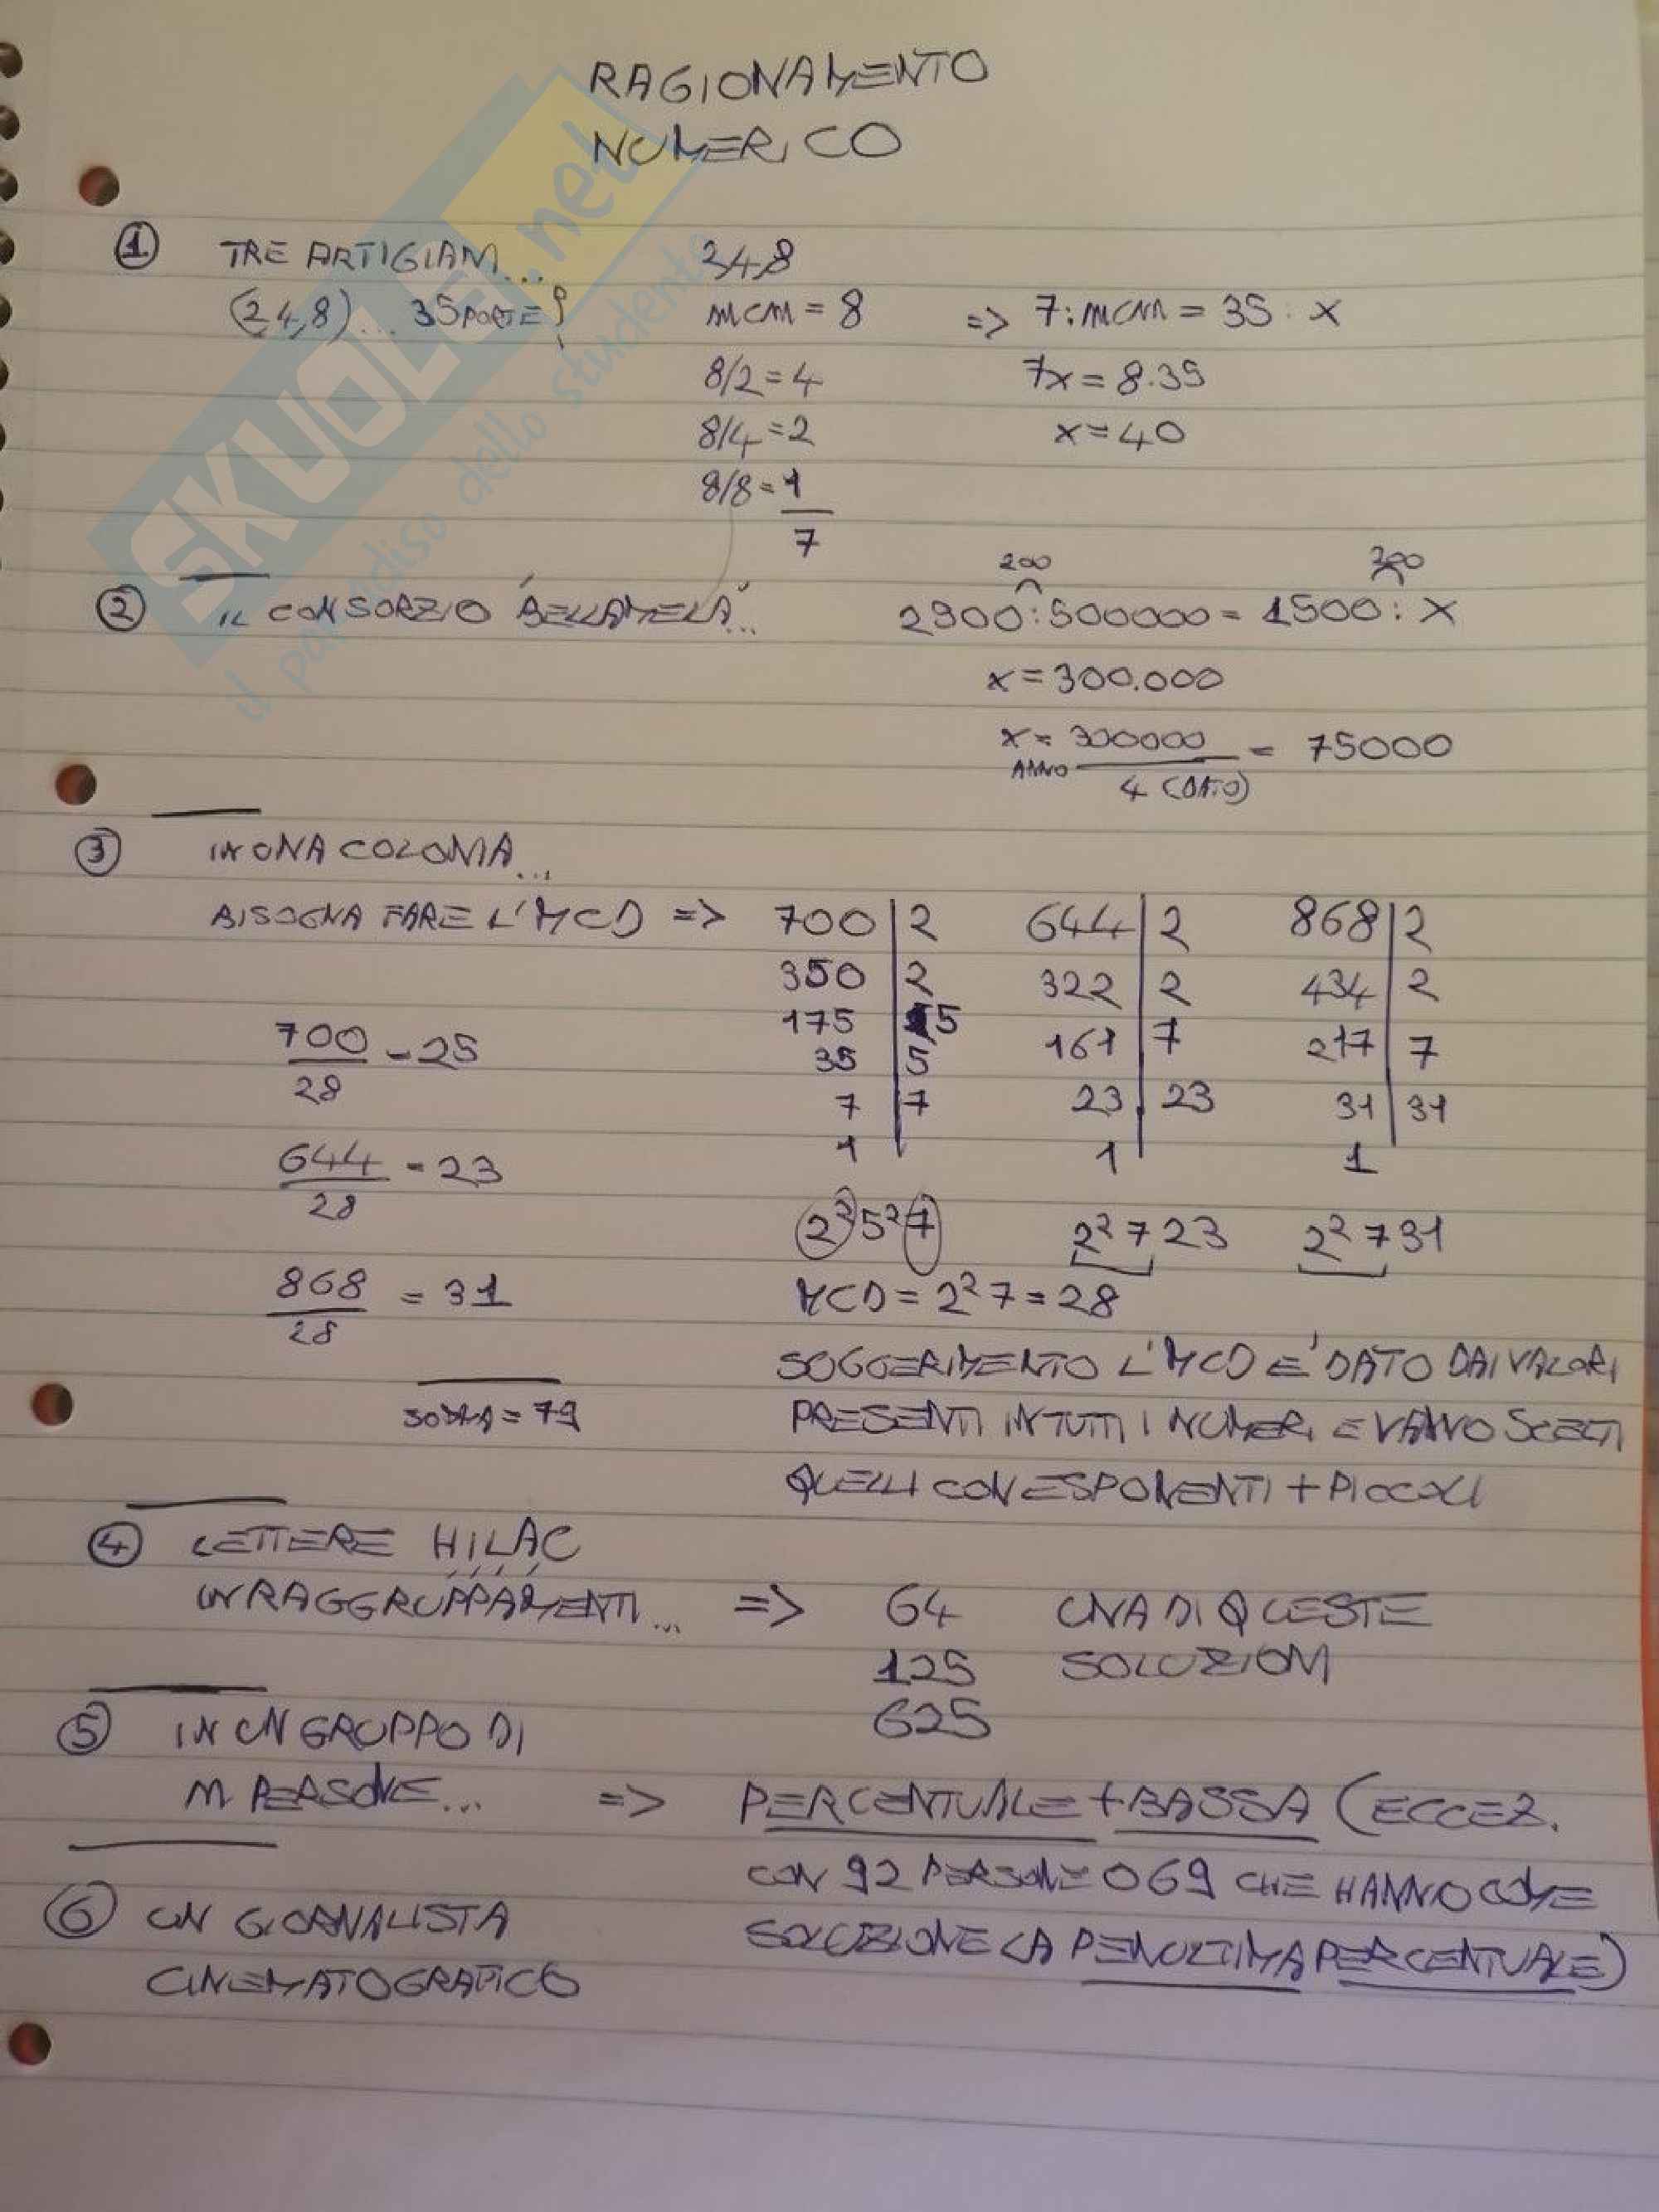 RAGIONAMENTO
NUMERICO
① TRE ARTIGIANI...
(2,4,8)... 35 PORTE?
2,4,8
mcm = 8
8/2 = 4
8/4 = 2
8/8 = 1
7
=> 7 : mcm = 35 : x
7x = 8·35
x = 40
② IL CONSORZIO "BELLAMELA"...
200 200
2500 : 500000 = 1500 : X
x = 300.000
x ANNO = 300000 / 4 (DATO) = 75000
③ IN UNA COLONIA...
BISOGNA FARE L'MCD =>
700 | 2
350 | 2
175 | 5
35 | 5
7 | 7
1
2² 5² 7
644 | 2
322 | 2
161 | 7
23 | 23
1
2² 7 23
868 | 2
434 | 2
217 | 7
31 | 31
1
2² 7 31
700/28 = 25
644/28 = 23
868/28 = 31
SOMMA = 79
MCD = 2² 7 = 28
SUGGERIMENTO L'MCD E' DATO DAI VALORI
PRESENTI IN TUTTI I NUMERI E VANNO SCELTI
QUELLI CON ESPONENTI + PICCOLI
④ LETTERE H,I,L,A,C
IN RAGGRUPPAMENTI... =>
64
125
625
UNA DI QUESTE
SOLUZIONI
⑤ IN UN GRUPPO DI
M PERSONE... => PERCENTUALE + BASSA (ECCEZ.
CON 92 PERSONE O 69 CHE HANNO COME
SOLUZIONE LA PENULTIMA PERCENTUALE)
⑥ UN GIORNALISTA
CINEMATOGRAFICO
SKUOLA.net
il paradiso dello studente